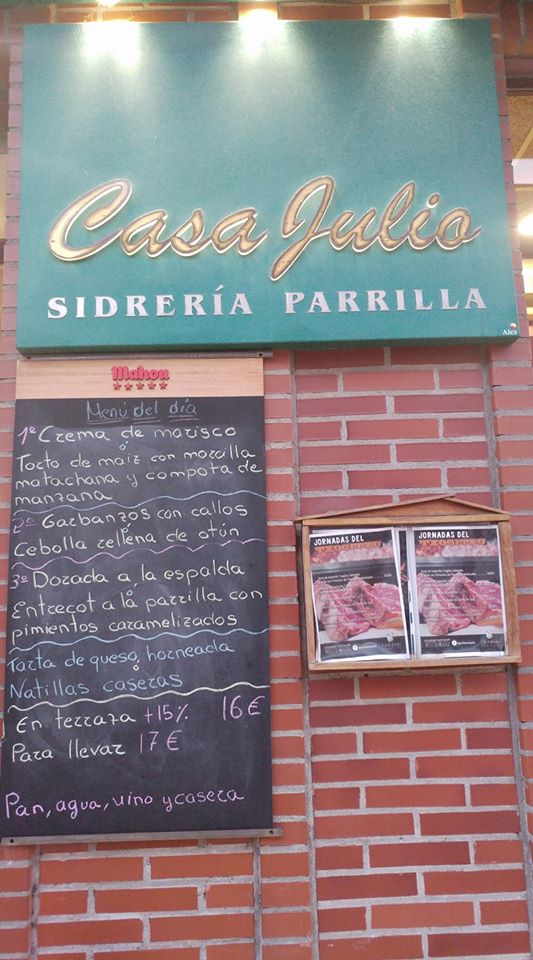 Casa Julio
SIDRERÍA PARRILLA
Alea
Mahou
Menu del día
1º Crema de marisco
o
Torto de maiz con morcilla
matachana y compota de
manzana
2º Garbanzos con callos
o
Cebolla rellena de atún
3º Dorada a la espalda
o
Entrecot a la parrilla con
pimientos caramelizados
Tarta de queso horneada
o
Natillas caseras
En terraza +15% 16€
Para llevar 17€
Pan, agua, vino y casera
JORNADAS DEL
JORNADAS DEL